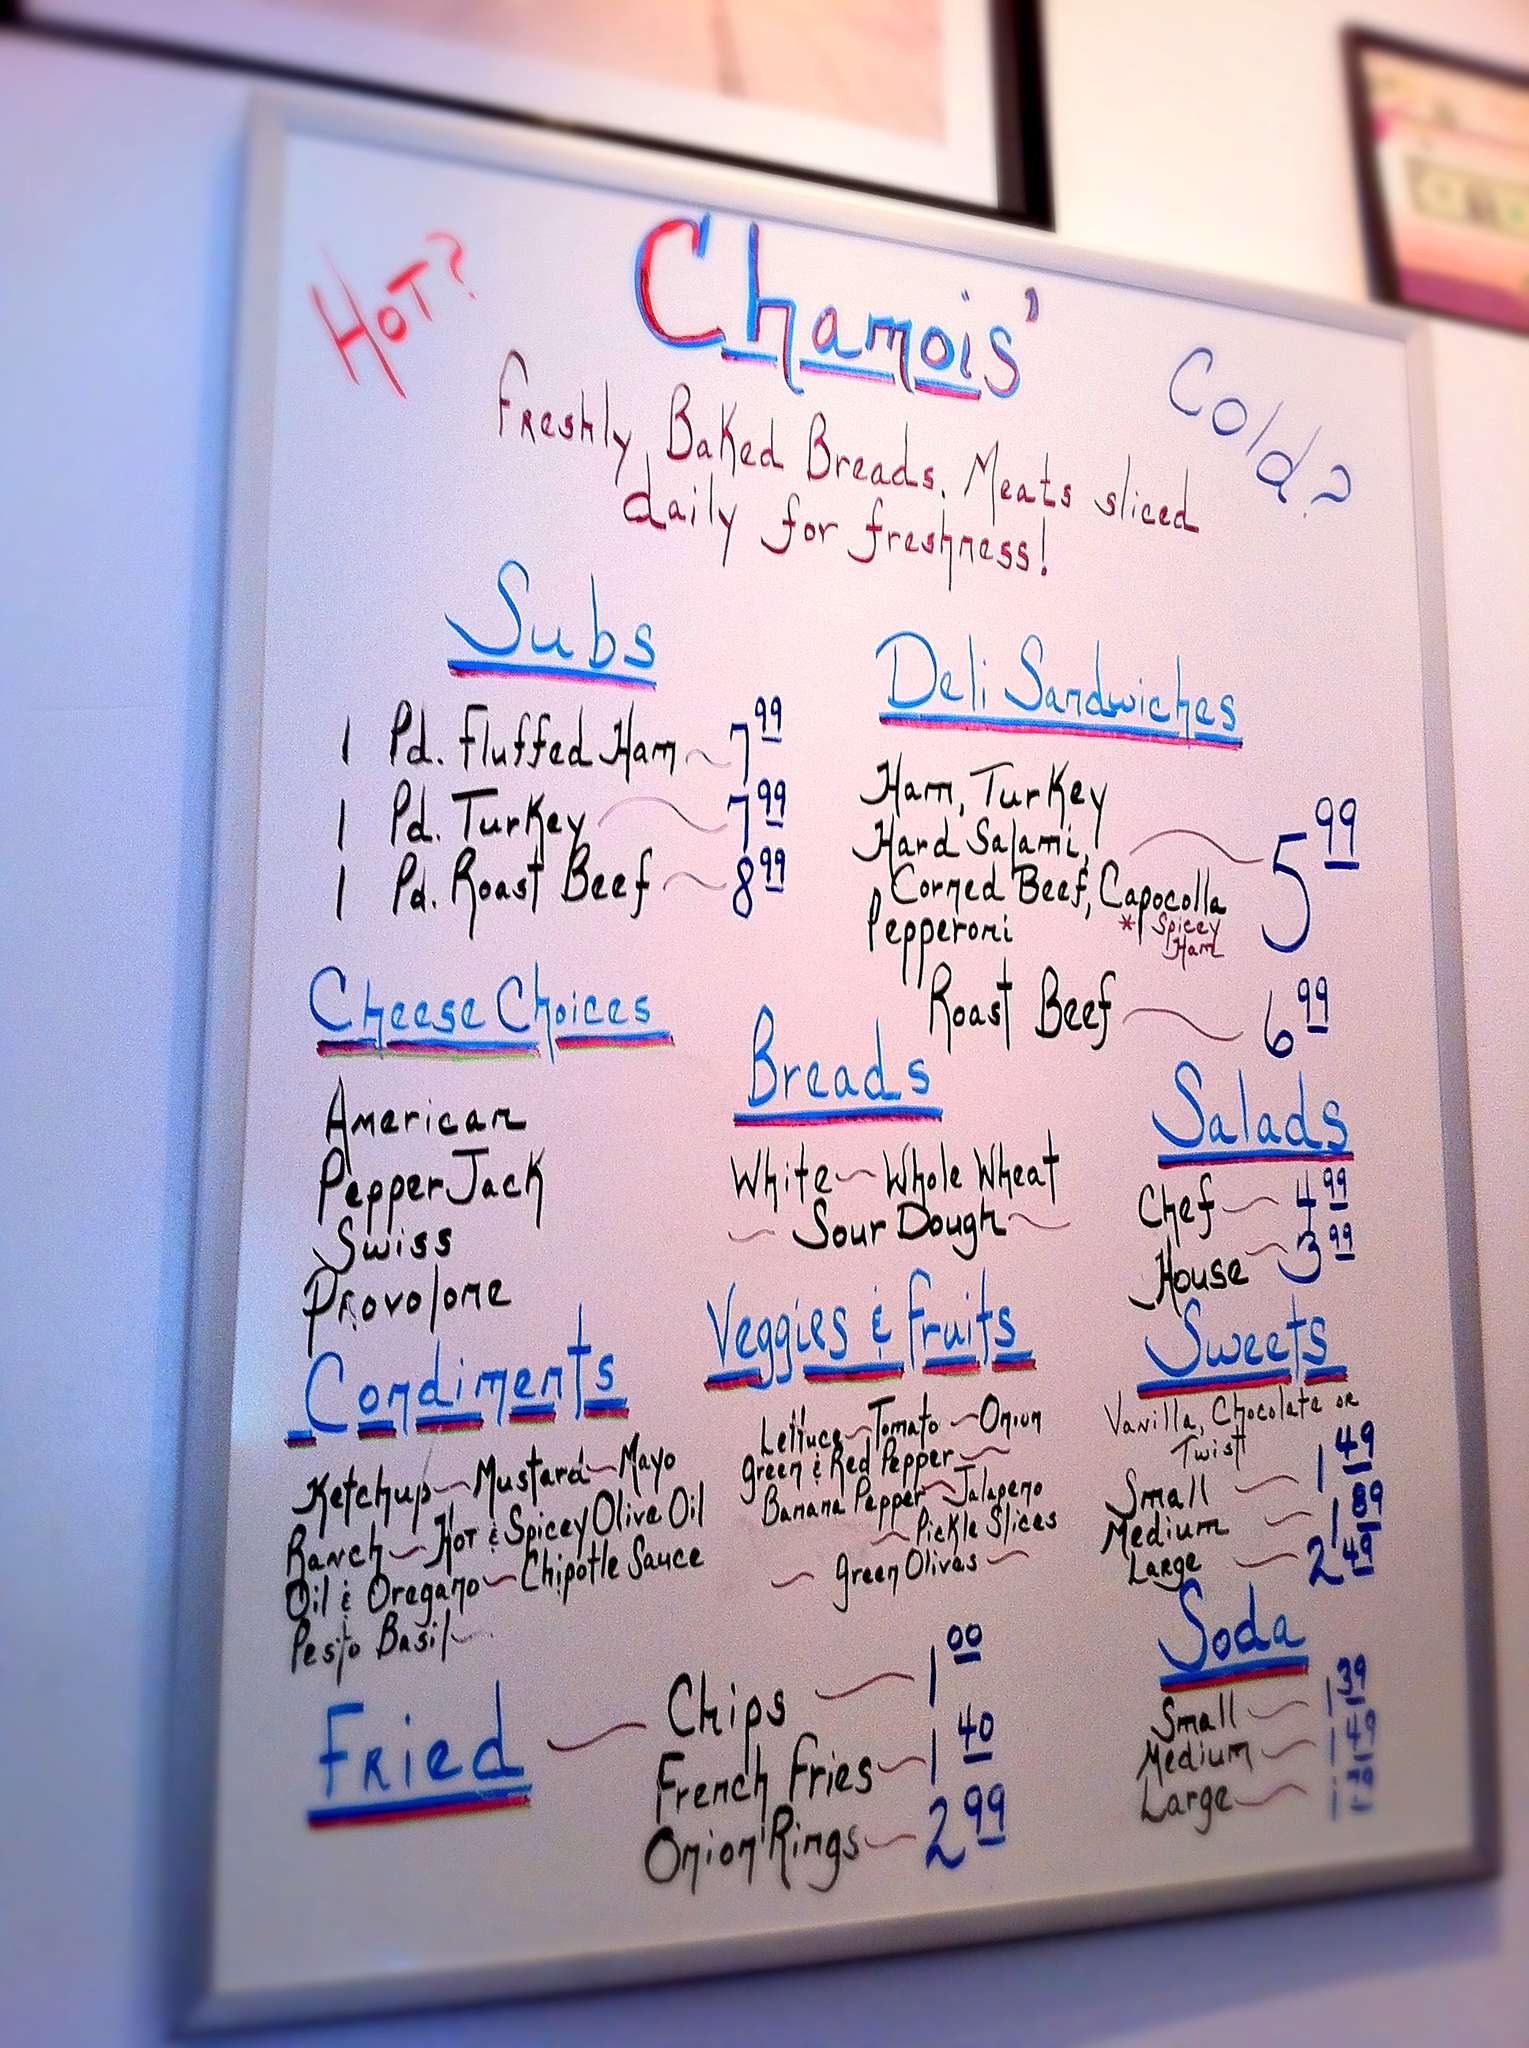 HOT?
Chamois'
Cold?
Freshly Baked Breads. Meats sliced
daily for freshness!
Subs
1 Pd. Fluffed Ham ~ 7 99
1 Pd. Turkey ~ 7 99
1 Pd. Roast Beef ~ 8 99
Deli Sandwiches
Ham, Turkey
Hard Salami, ~ 5 99
Corned Beef, Capocolla
Pepperoni * Spicey
Ham
Roast Beef ~ 6 99
Cheese Choices
American
Pepper Jack
Swiss
Provolone
Breads
White ~ Whole Wheat
~ Sour Dough ~
Salads
Chef ~ 4 99
House ~ 3 99
Condiments
Ketchup ~ Mustard ~ Mayo
Ranch ~ Hot & Spicey Olive Oil
Oil & Oregano ~ Chipotle Sauce
Pesto Basil ~
Veggies & Fruits
Lettuce ~ Tomato ~ Onion
Green & Red Pepper ~
Banana Pepper ~ Jalapeno
~ Pickle Slices
~ Green Olives ~
Sweets
Vanilla, Chocolate or
Twist
Small ~ 1 49
Medium ~ 1 89
Large ~ 2 49
Fried ~ Chips ~ 1 00
French Fries ~ 1 40
Onion Rings ~ 2 99
Soda
Small ~ 1 39
Medium ~ 1 49
Large ~ 1